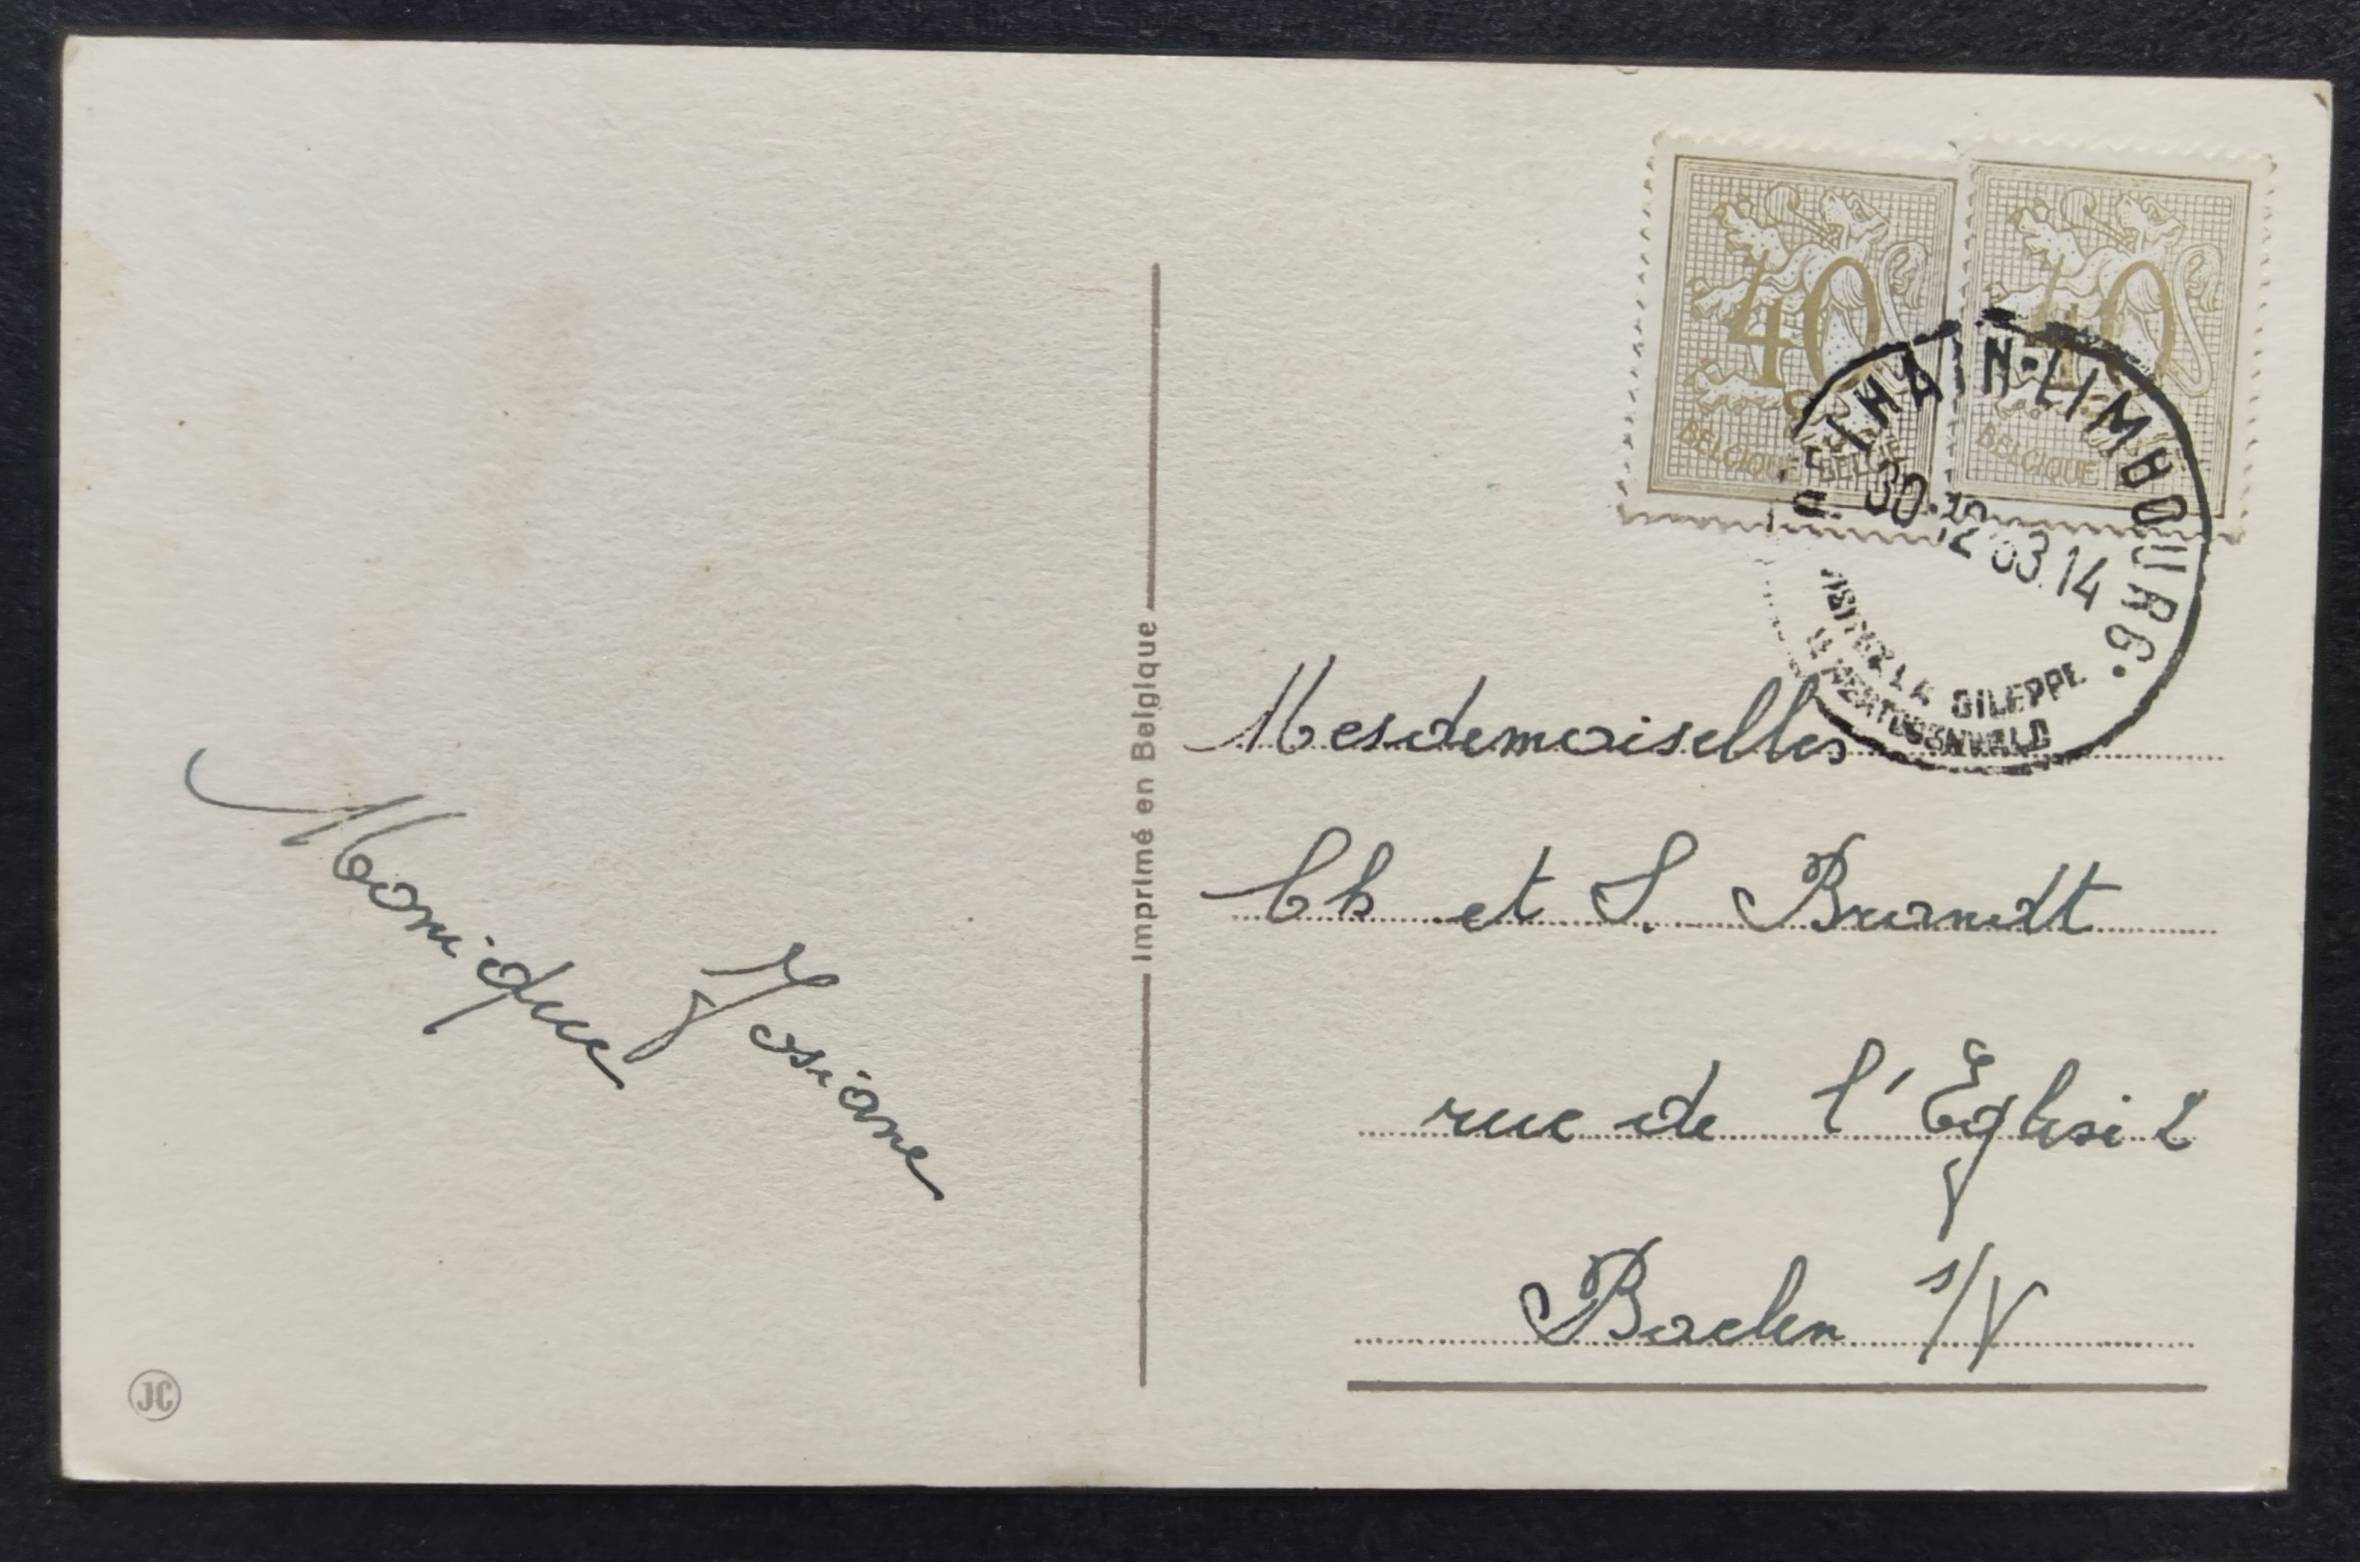 40
BELGIQUE BELGIE
40
BELGIQUE
THAIN-LIMBOURG.
30.12 14
VISITEZ LA GILEPPE
HERTOGENWALD
Imprimé en Belgique
Monique Josiane
Mesdemoiselles
Ch et S. Brandt
rue de l'Eglise
Baelen s/V
JC